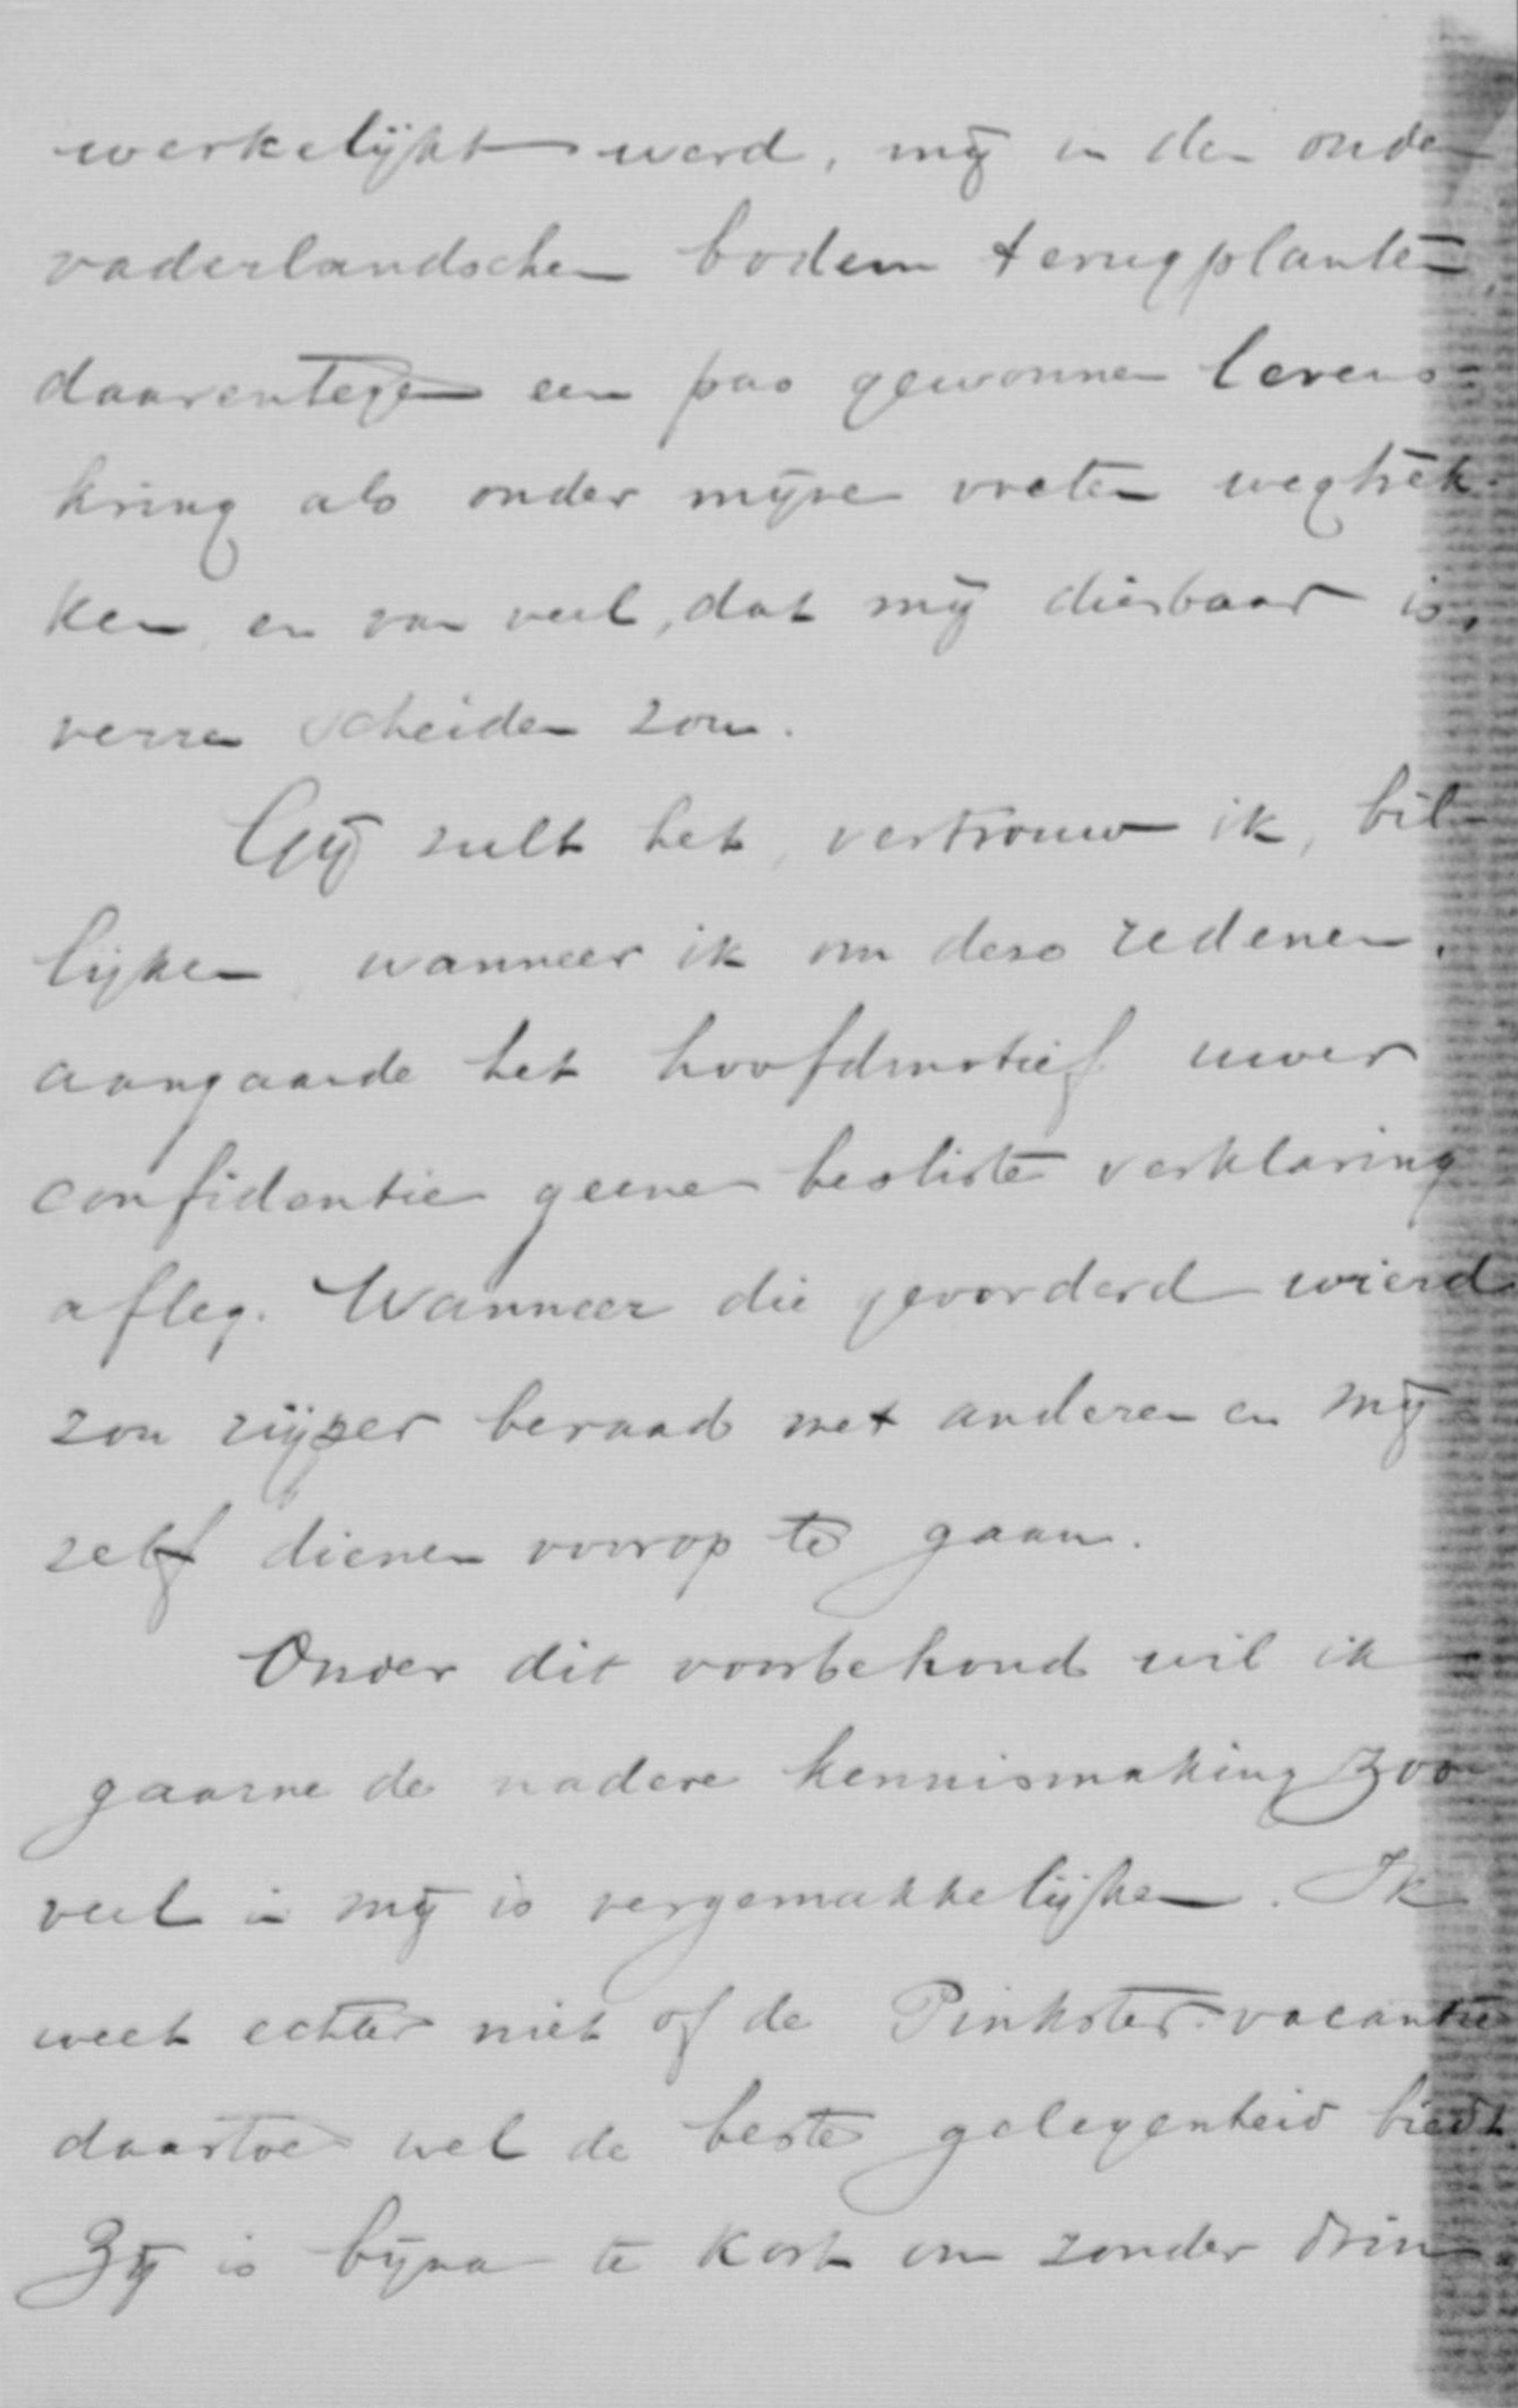 werkelijkt werd, mij in den ouden
vaderlandschen bodem terugplanten,
daarentegen een pas gewonnen levens-
kring als onder mijne voeten wegtrek-
ken, en van veel, dat mij dierbaar is,
verre scheiden zou.
Gij zult het, vertrouw ik, bil-
lijken, wanneer ik om deze redenen,
aangaande het hoofdmotief uwer
confidentie geene besliste verklaring
afleg. Wanneer die gevorderd wierd
zou rijper beraad met anderen en mij
zelf dienen voorop te gaan.
Onder dit voorbehoud wil ik
gaarne de nadere kennismaking zoo
veel in mij is vergemakkelijken. Ik
weet echter niet of de Pinkster-vacantie
daartoe wel de beste gelegenheid biedt.
Zij is bijna te kort om zonder drin-